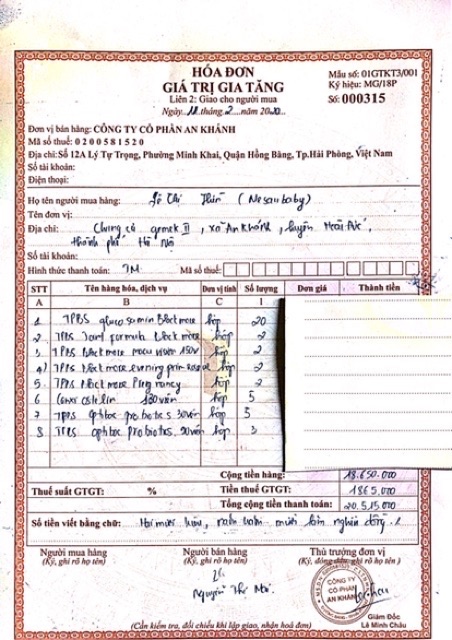 HÓA ĐƠN
GIÁ TRỊ GIA TĂNG
Liên 2: Giao cho người mua
Ngày 11 tháng 2 năm 2020
Mẫu số: 01GTKT3/001
Ký hiệu: MG/18P
Số: 000315
Đơn vị bán hàng: CÔNG TY CỔ PHẦN AN KHÁNH
Mã số thuế: 0200581520
Địa chỉ: Số 12A Lý Tự Trọng, Phường Minh Khai, Quận Hồng Bàng, Tp.Hải Phòng, Việt Nam
Số tài khoản:
Điện thoại:
Họ tên người mua hàng: Thị (Mesaubaby)
Tên đơn vị:
Địa chỉ: Chung cư gemek II, xã An Khánh, huyện Hoài Đức,
thành phố Hà Nội
Số tài khoản:
Hình thức thanh toán: TM Mã số thuế:
STT Tên hàng hóa, dịch vụ Đơn vị tính Số lượng Đơn giá Thành tiền
A B C 1
1 TPBS glucosamin Blackmore hộp 20
2 TPBS Joint formula blackmore hộp 2
3 TPBS Blackmore 150V hộp 2
4) TPBS blackmore evening primrose hộp 2
5. TPBS blackmore Pregnancy hộp 2
6 ostelin 130 viên hộp 5
7 TPBS optibac probiotics 30 viên hộp 5
8 TPBS optibac probiotics 90 viên hộp 3
Cộng tiền hàng: 18.650.000
Thuế suất GTGT: % Tiền thuế GTGT: 1865.000
Tổng cộng tiền thanh toán: 20.515.000
Số tiền viết bằng chữ: Hai mươi triệu, năm trăm mười lăm nghìn đồng
Người mua hàng Người bán hàng Thủ trưởng đơn vị
(Ký, ghi rõ họ tên) (Ký, ghi rõ họ tên) (Ký, đóng dấu, ghi rõ họ tên)
CÔNG TY
CỔ PHẦN
AN KHÁNH
Nguyễn Thị
Giám Đốc
Lê Minh Châu
(Cần kiểm tra, đối chiếu khi lập, giao nhận hoá đơn)